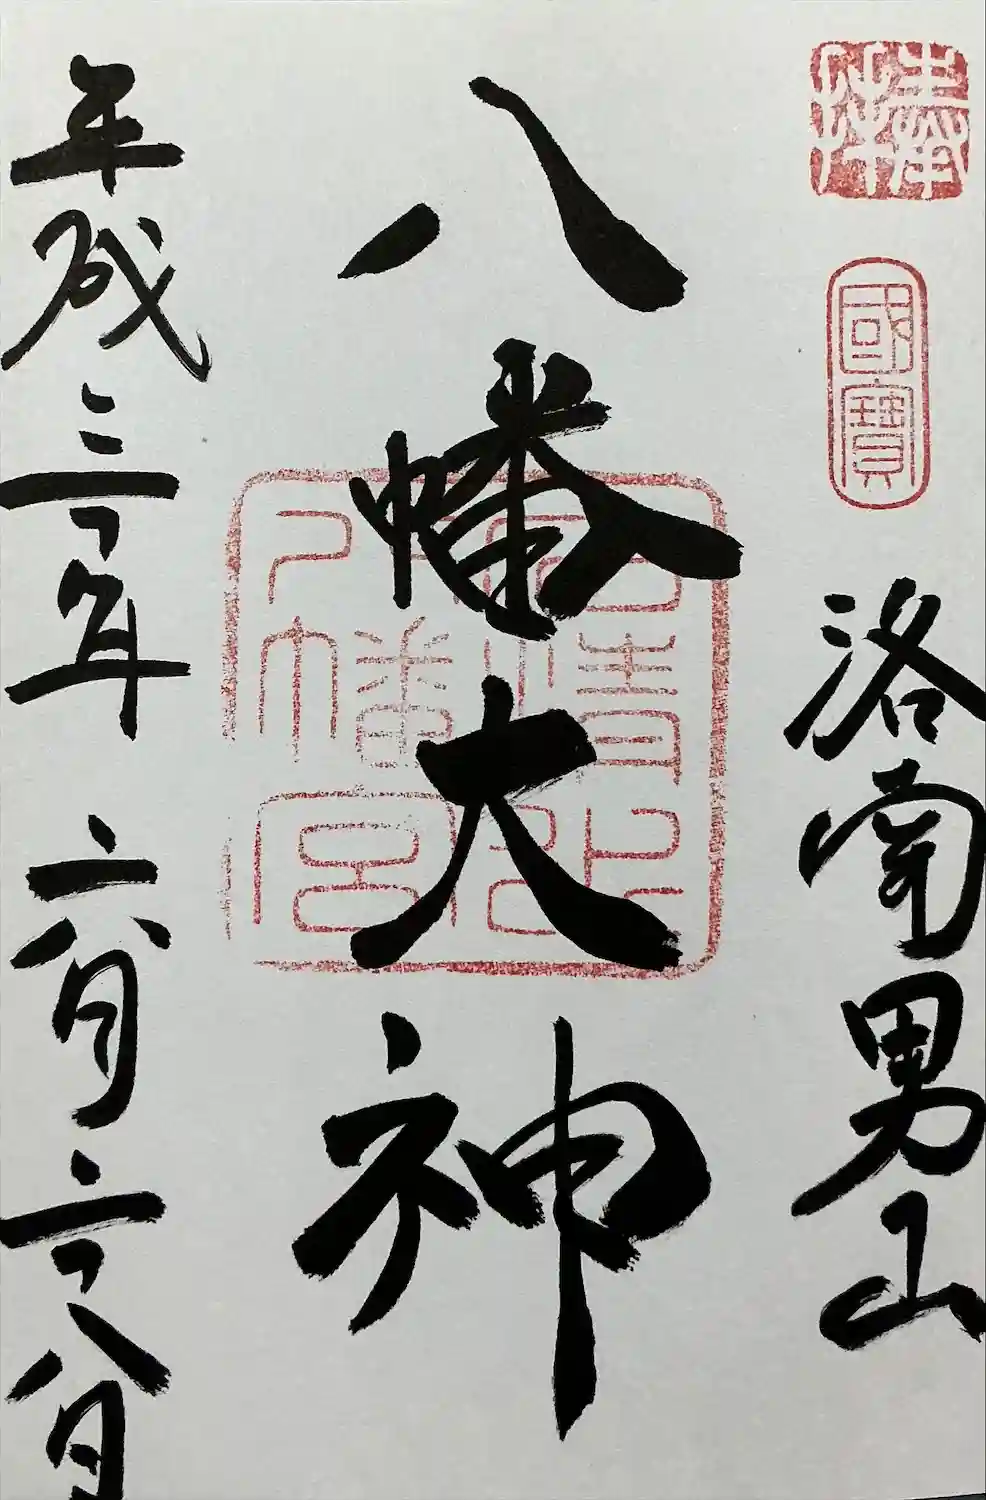 奉拜
國寶
洛南男山
八幡大神
八幡宮
平成三十年六月二十八日